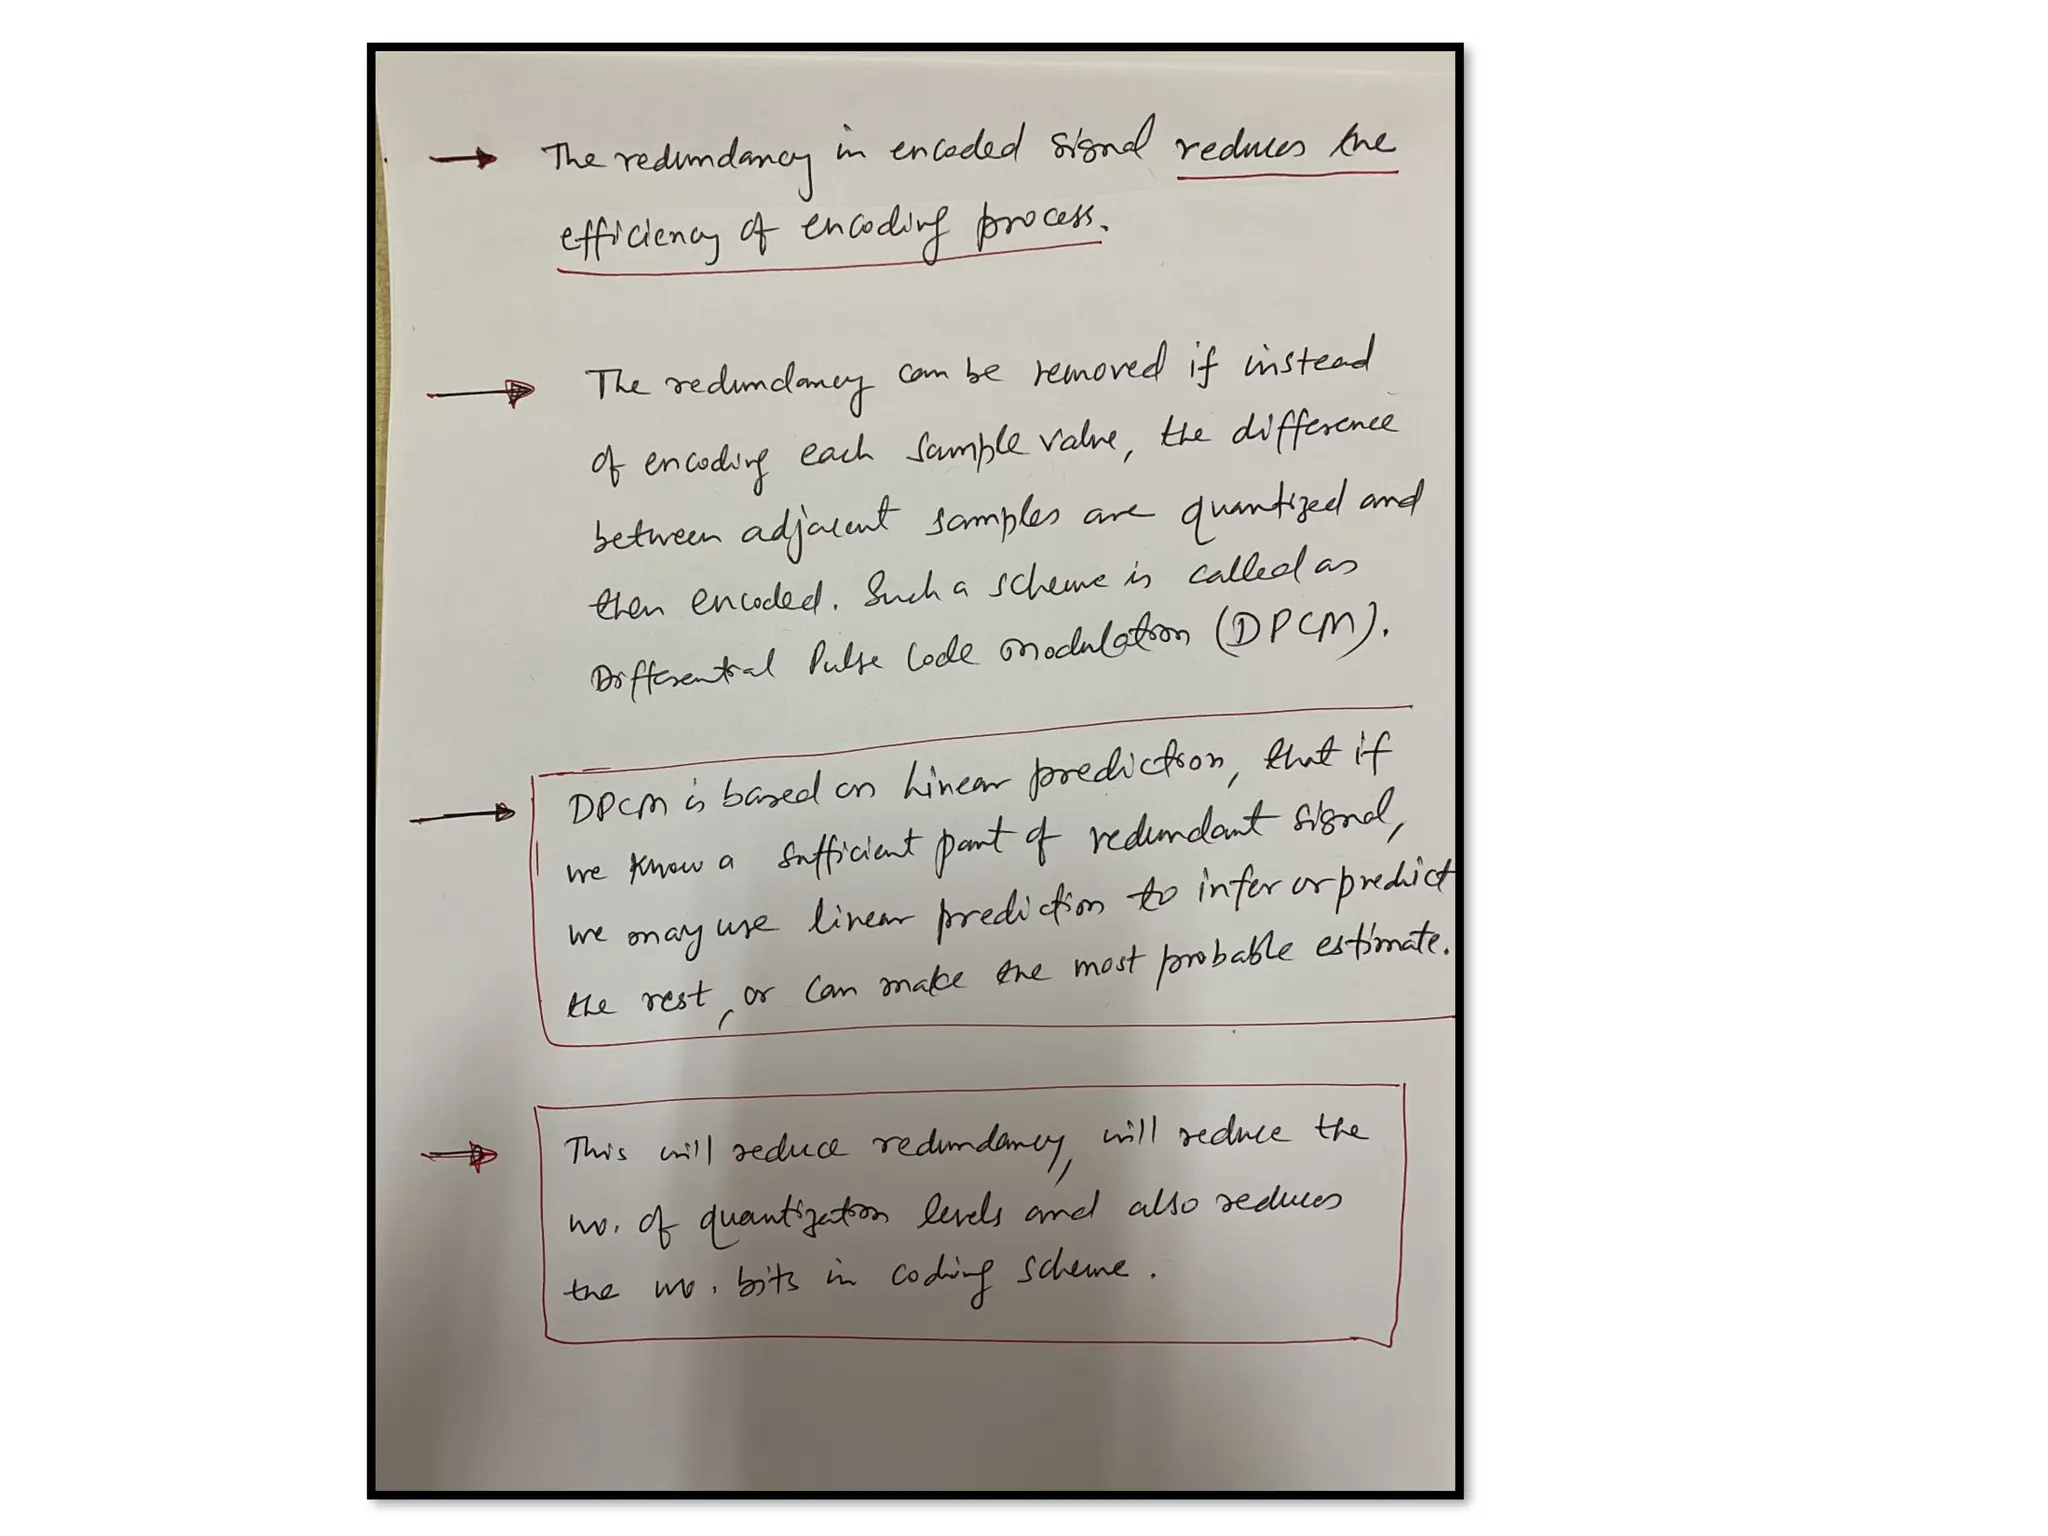 The redundancy in encoded signal reduces the
efficiency of encoding process.
The redundancy can be removed if instead
of encoding each sample value, the difference
between adjacent samples are quantized and
then encoded. Such a scheme is called as
Differential Pulse Code modulation (DPCM).
DPCM is based on Linear prediction, that if
we know a sufficient part of redundant signal,
we may use linear prediction to infer or predict
the rest, or can make the most probable estimate.
This will reduce redundancy, will reduce the
no. of quantization levels and also reduces
the no. bits in coding scheme.